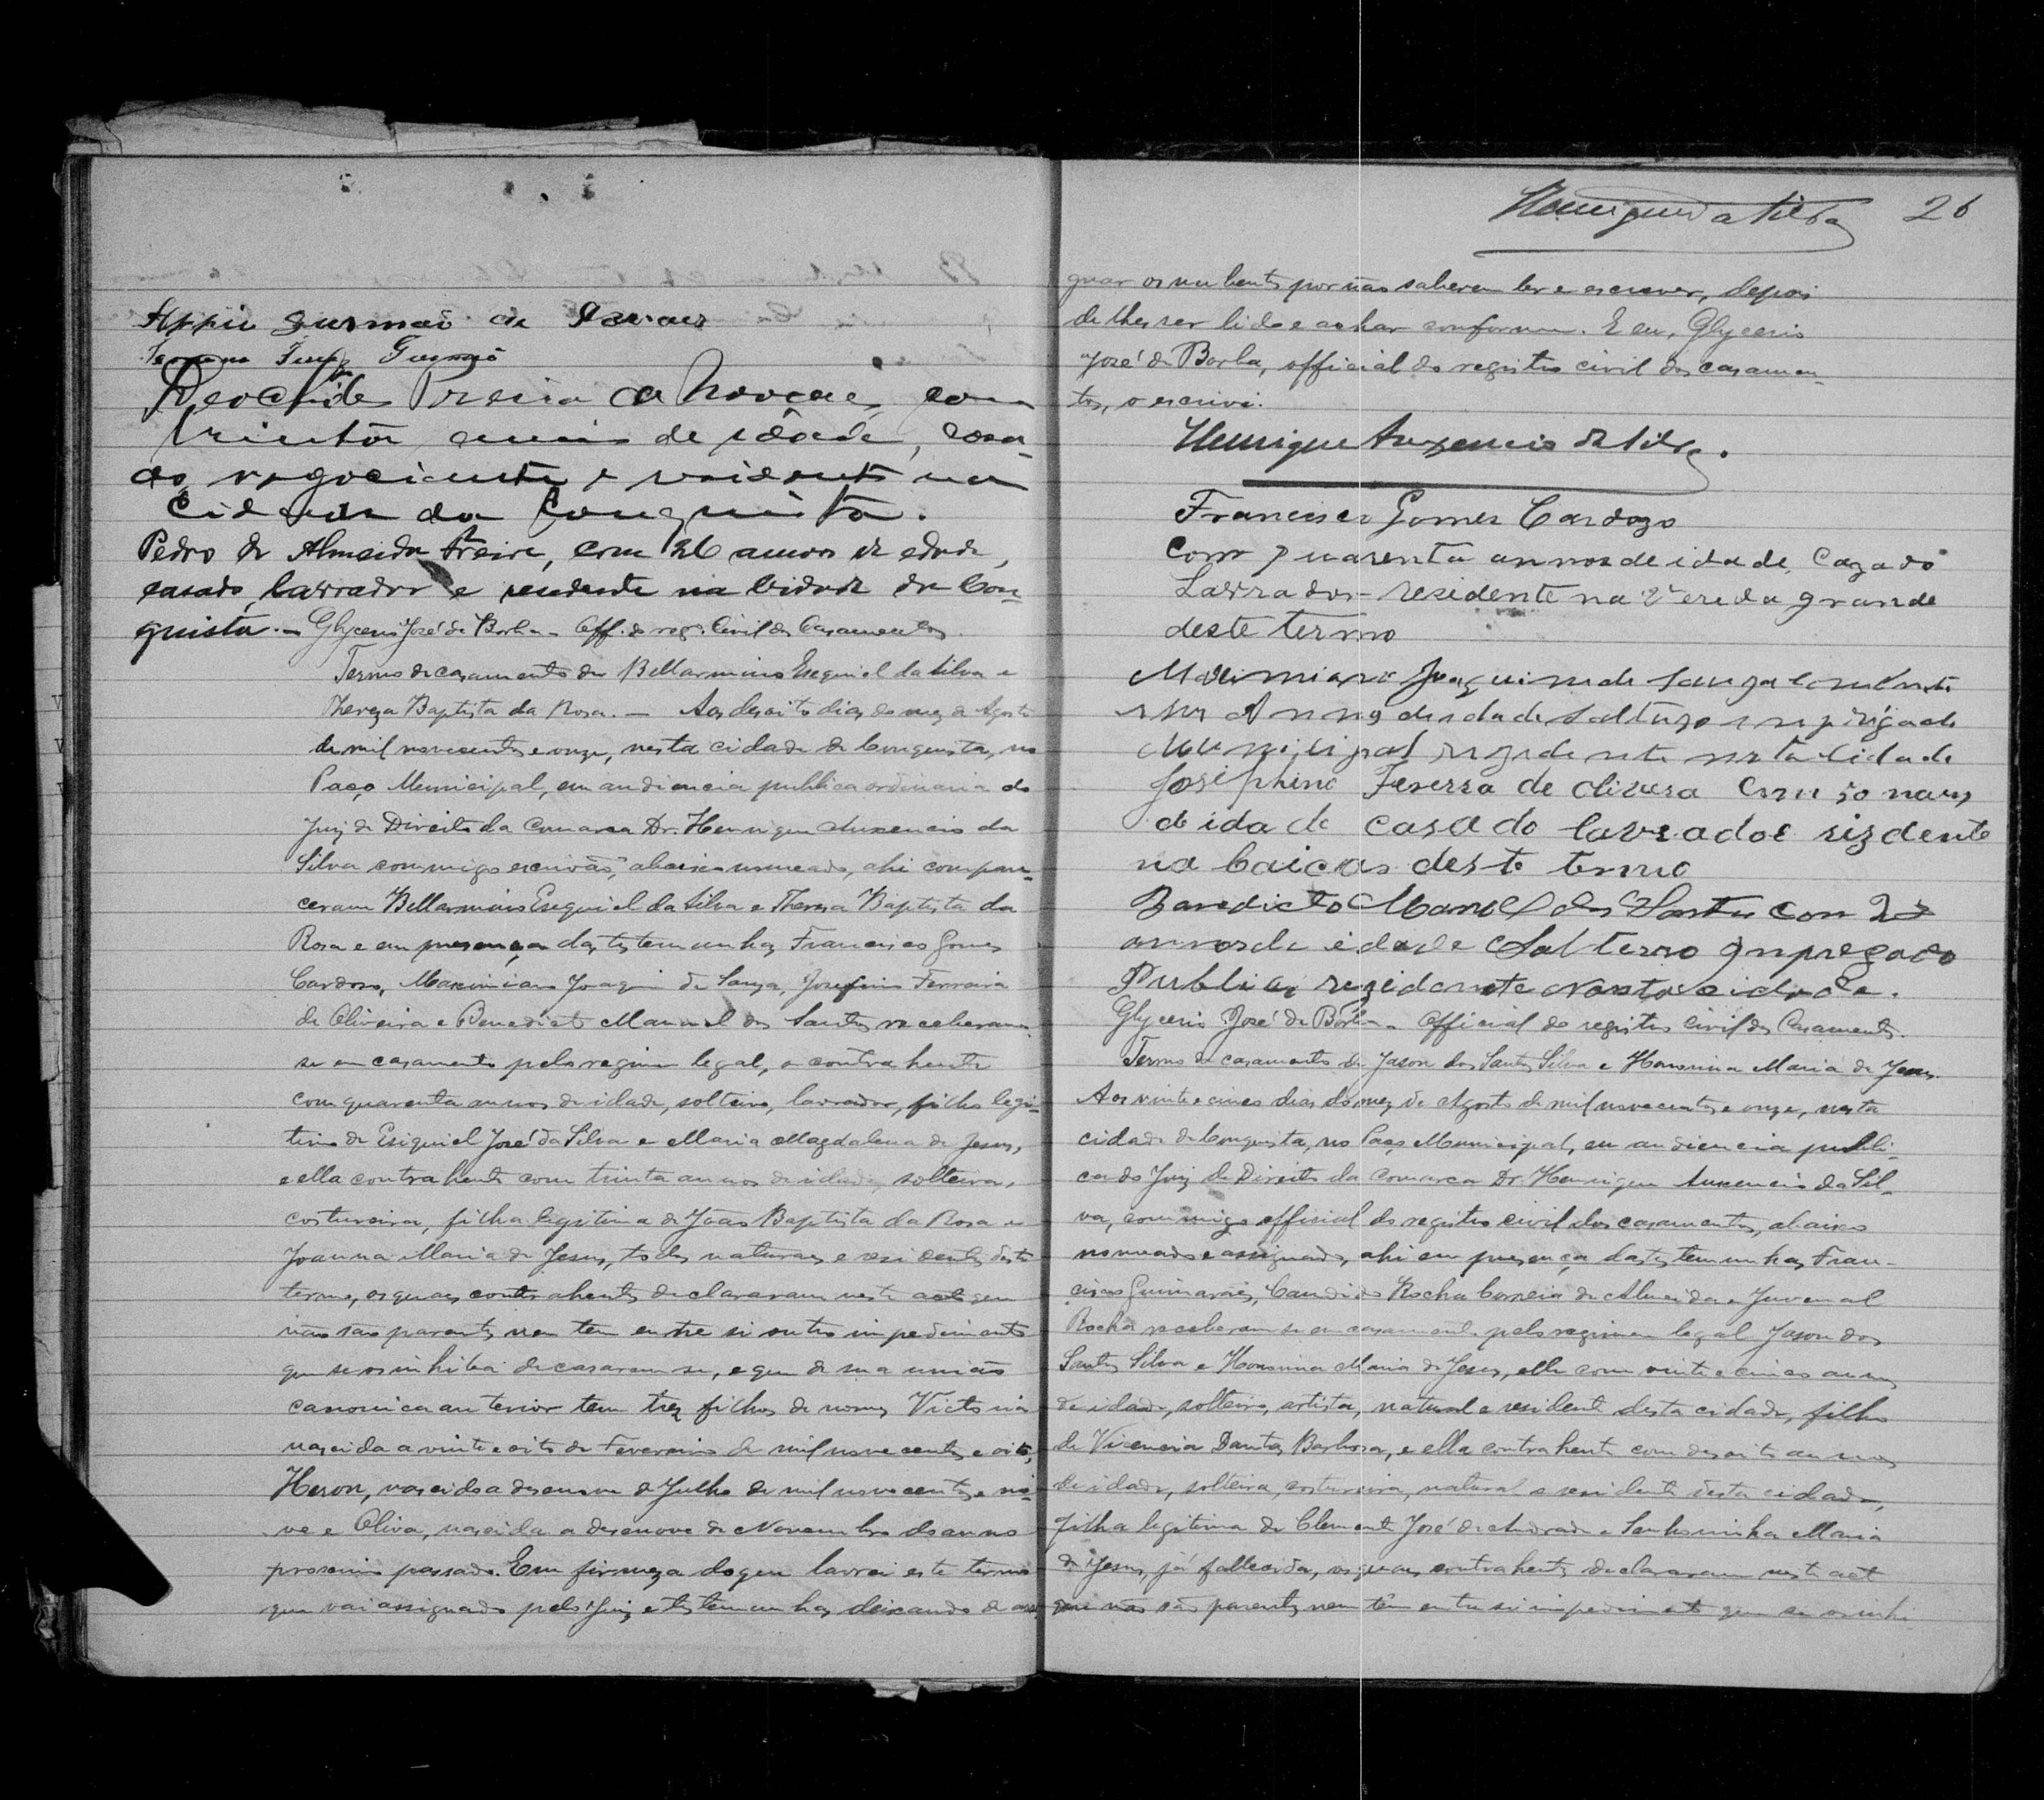 Appio Gusmão de
Gusmão
Deocleides Pereira de Novaes, com
trinta annos de idade, casa-
do, negociante e residente na
Cidade da Conquista.
Pedro de Almeida Freire, com 26 annos de edade,
casado, lavrador e residente na Cidade da Con-
quista. — Glycerio José de Borba - Off. do regº. Civil dos Casamentos.
Termo de casamento de Bellarmino Esequiel da Silva e
Thereza Baptista da Rosa. — Aos desoito dias do mez de Agosto
de mil novecentos e onze, nesta cidade de Conquista, no
Paço Municipal, em audiencia publica ordinaria do
Juiz de Direito da Comarca Dr. Henrique Auxencio da
Silva commigo escrivão, abaixo nomeado, ahi compare-
ceram Bellarmino Esequiel da Silva e Thereza Baptista da
Rosa e em presença das testemunhas Francisco Gomes
Cardoso, Maximiano Joaquim de Souza, Josefino Ferreira
de Oliveira e Benedicto Manuel dos Santos receberam-
se em casamento pelo regimen legal, o contrahente
com quarenta annos de idade, solteiro, lavrador, filho legi-
timo de Esiquiel José da Silva e Maria Magdalena de Jesus,
e ella contrahente com trinta annos de idade, solteira,
costureira, filha legitima de João Baptista da Rosa e
Joanna Maria de Jesus, todos naturaes e residentes deste
termo, os quaes contrahentes declararam neste acto que
não são parentes nem tem entre si outro impedimento
que se os inhiba de casarem-se, e que de sua união
canonica anterior tem tres filhos de nomes Victoria
nascida a vinte e oito de Fevereiro de mil novecentos e oito,
Heron, nascido a desenove de Julho de mil novecentos e no-
ve e Oliva, nascida a desenove de Novembro do anno
proximo passado. Em firmeza do que lavrei este termo
que vai assignado pelo Juiz e testemunhas, deixando de assi-
Henrique da Silva 26
gnar os nubentes por não saberem ler e escrever, depois
de lhes ser lido e achar conforme. E eu, Glycerio
José de Borba, official do registro civil dos casamen-
tos, o escrivi.
Henrique Auxencio da Silva.
Francisco Gomes Cardozo
Com quarenta annos de idade, Cazado
Lavrador - residente na Vereda grande
deste termo
Maximiano Joaquim de Souza
Annos de idade Solteiro
Municipal rezidente nesta Cidade
Josephino Fereira de Olivera Com 50 naus
de idade casado lavrador rizdente
na Caicas deste termo
Benedicto Manoel dos Santos Con 23
annos de idade Solteiro Inpregado
Publico rezidente Nesta cidade.
Glycerio José de Borba - Official do registro Civil dos Casamentos.
Termo de casamento de Jason dos Santos Silva e Honorina Maria de Jesus.
Aos vinte e cinco dias do mez de Agosto de mil novecentos e onze, nesta
cidade de Conquista, no Paço Municipal, em audiencia publi-
ca do Juiz de Direito da Comarca Dr. Henrique Auxencio da Sil-
va, commigo official do registro civil dos casamentos, abaixo
nomeado e assignado, ahi em presença das testemunhas Fran-
cisco Guimarães, Candido Rocha Correia de Almeida e Juvenal
Rocha receberam-se em casamento pelo regimen legal Jason dos
Santos Silva e Honorina Maria de Jesus, elle com vinte e cinco annos
de idade, solteiro, artista, natural e residente desta cidade, filho
de Vicencia Dantas Barbosa, e ella contrahente com desoito annos
de idade, solteira, costureira, natural e residente desta cidade,
filha legitima de Clemente José de Andrade e Senhorinha Maria
de Jesus, já fallecida, os quaes contrahentes declararam neste acto
que não são parentes nem têm entre si impedimento que se os inhi-